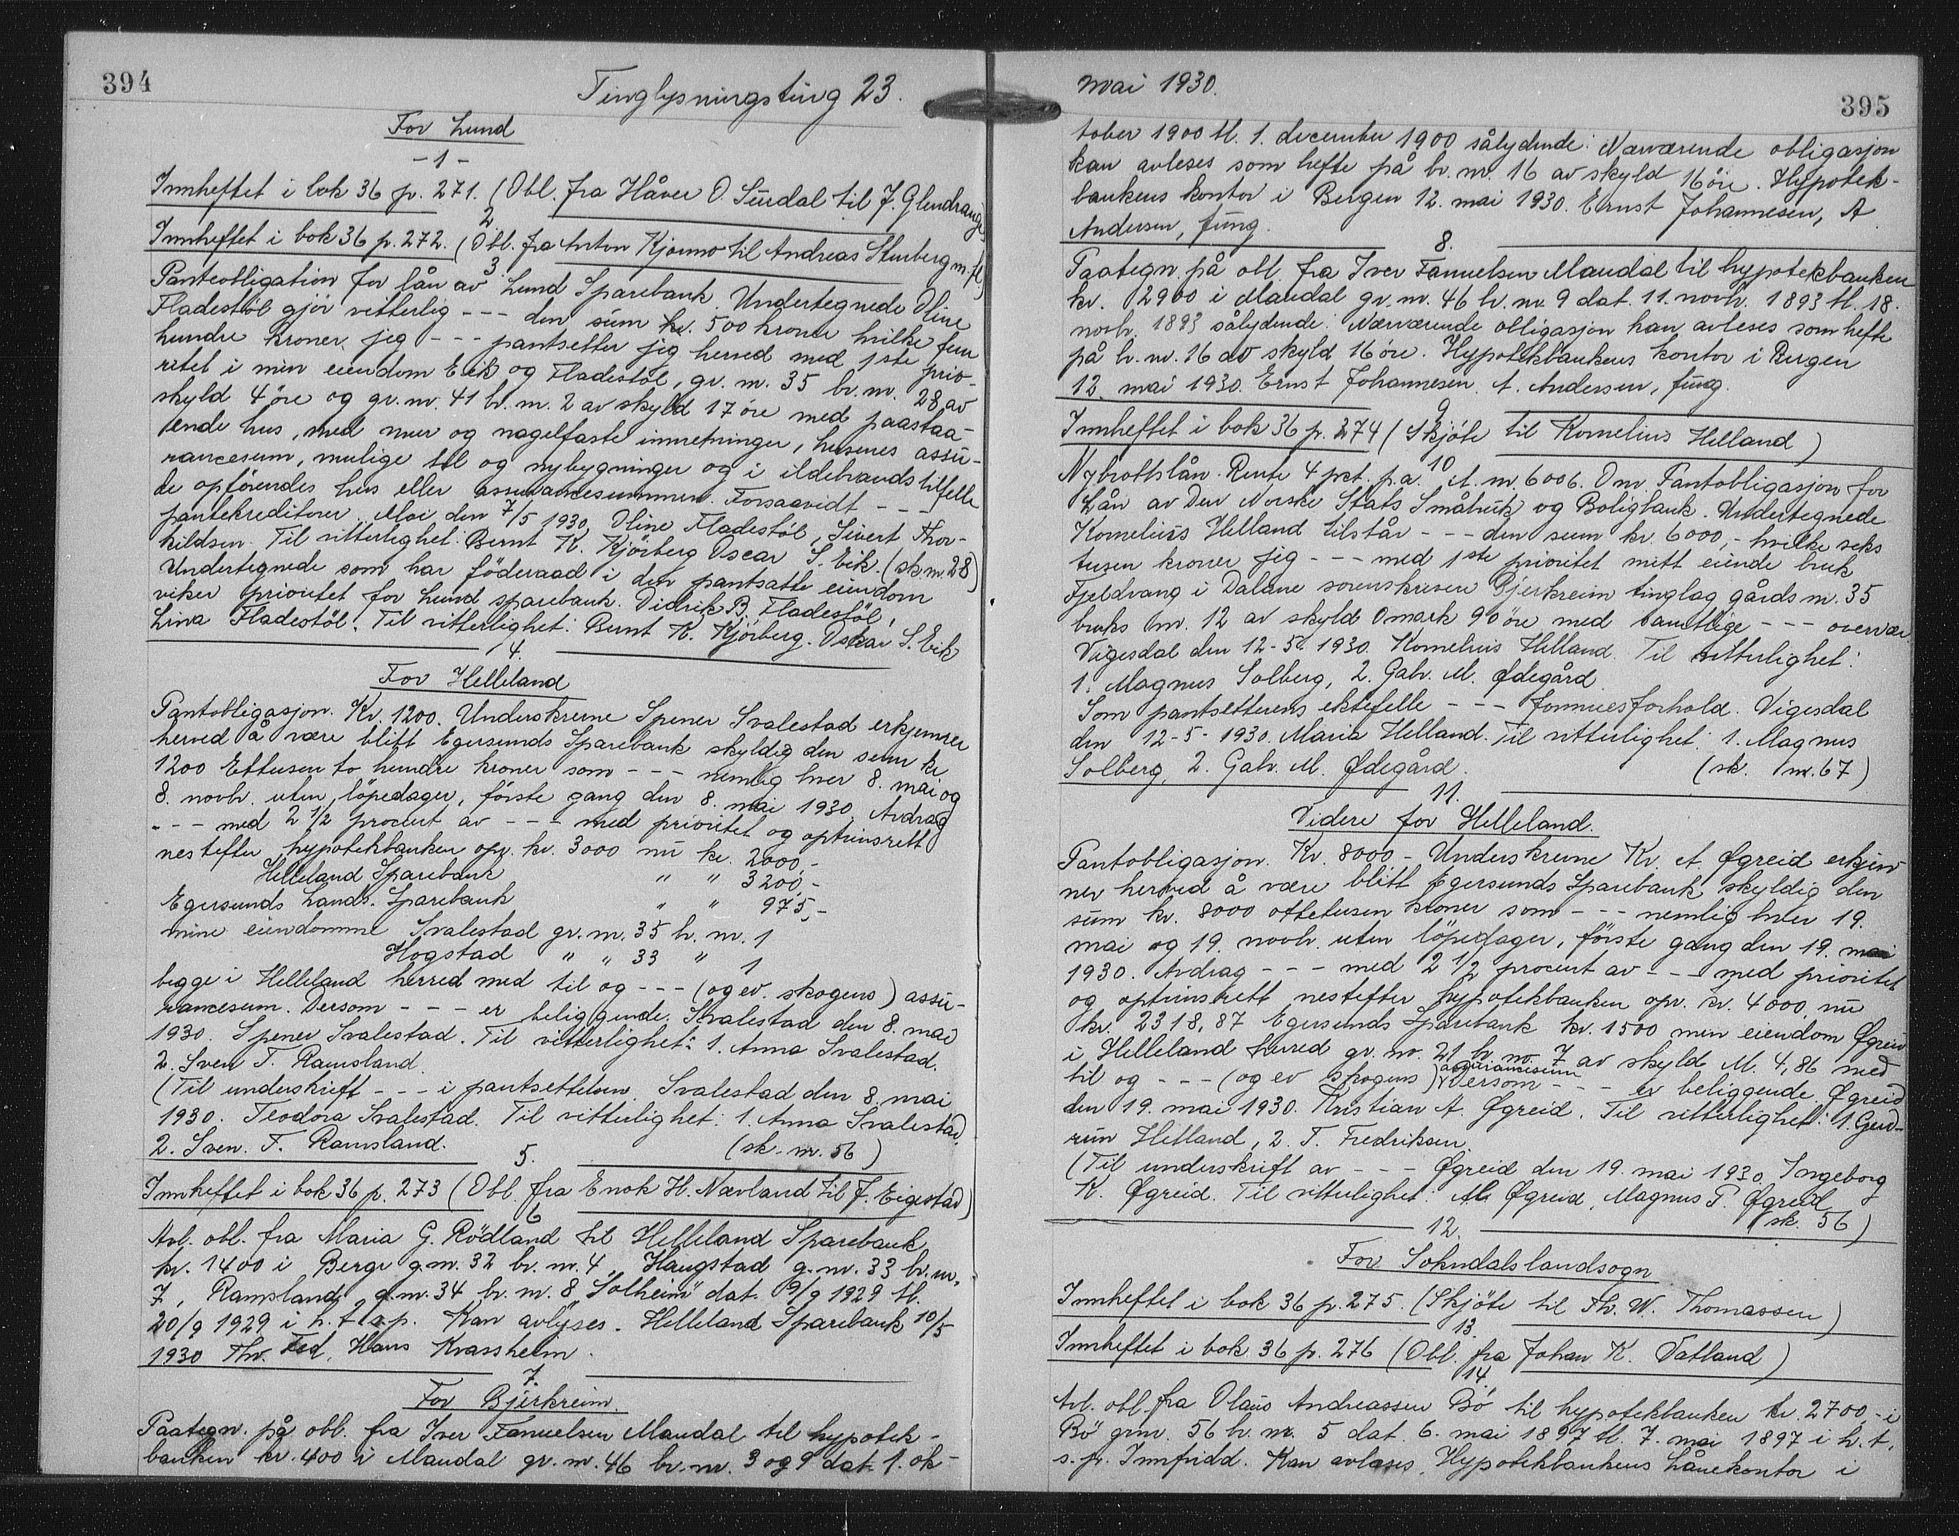 394
Tinglysningsting 23.
For Lund
-1-
Innheftet i bok 36 p. 271. (Obl. fra Håver O. Surdal til J. Glendrange)
2.
Innheftet i bok 36 p. 272. (Obl. fra Anton Kjørmo til Andreas Stenberg m.fl)
3.
Panteobligation for lån av Lund Sparebank. Undertegnede Oline
Fladestöl gjör vitterlig --- den sum kr. 500 kroner hvilke fem
hundre kroner jeg --- pantsetter jeg herved med 1ste prio-
ritet i min eiendom Eik og Fladestöl, gr. nr. 35 br. nr. 28 av
skyld 4 öre og gr. nr. 41 br. nr. 2 av skyld 17 öre med paastaa-
ende hus, med mur og nagelfaste innretninger, husenes assu-
rancesum, mulige til og nybygninger og i ildebrandstilfelle
de opförendes hus eller assurancesummen. Forsaavidt ---
pantekreditorer. Moi den 7/5 1930. Oline Fladestöl, Sivert Thor-
kildsen. Til vitterlighet: Bernt K. Kjörberg Oscar S. Eik. (sk.nr. 28)
Undertegnede som har föderaad i den pantsatte eiendom
viker prioritet for Lund sparebank. Didrik B. Fladestöl,
Lina Fladestöl. Til vitterlighet: Bernt K. Kjörberg. Oskar S. Eik
4.
For Helleland
Pantobligasjon. Kr. 1200. Underskrevne Spener Svalestad erkjenner
herved å være blitt Egersunds Sparebank skyldig den sum kr.
1200 Ettusen to hundre kroner som --- nemlig hver 8. mai og
8. novbr. uten löpedager, förste gang den 8. mai 1930. Avdrag
--- med 2 1/2 procent av --- med prioritet og optrinsrett
nestefter hypotekbanken opr. kr. 3000 nu kr. 2000,-
Helleland Sparebank " " 3200,-
Egersunds Lands. Sparebank " " 975,-
mine eiendomme Svalestad gr. nr. 35 br. nr. 1
Hogstad " " 33 " 1
begge i Helleland herred med til og --- (og ev. skogens) assu-
rancesum. Dersom --- er beliggende. Svalestad den 8. mai
1930. Spener Svalestad. Til vitterlighet: 1. Anna Svalestad.
2. Sven T. Ramsland.
(Til underskrift --- i pantsettelsen. Svalestad den 8. mai
1930. Teodora Svalestad. Til vitterlighet: 1. Anna Svalestad.
2. Sven. T. Ramsland. (sk. nr. 56)
5.
Innheftet i bok 36 p. 273 (Obl. fra Enok H. Nævland til F. Eigestad)
6
Avl. obl. fra Maria G. Rödland til Helleland Sparebank
kr. 1400 i Berge g.nr. 32 br. nr. 4, Haugstad g. nr. 33 br. nr.
7, Ramsland g.nr. 34 br. nr. 8 "Solheim" dat. 9/9 1929 tl.
20/9 1929 i h. t. a p. Kan avlyses. Helleland Sparebank 10/5
1930 Thv. Fed, Hans Krassheim.
7.
For Bjerkreim.
Paategn. på obl. fra Iver Fanuelsen Maudal til hypotek-
banken kr. 400 i Maudal gr. nr. 46 br. nr. 3 og 9 dat. 1. ok-
mai 1930.
395
tober 1900 tl. 1. december 1900 sålydende: Nærværende obligasjon
kan avleses som hefte på br. nr. 16 av skyld 16 öre. Hypotek-
bankens kontor i Bergen 12. mai 1930. Ernst Johannesen, A
Andersen, fung.
8.
Paategn. på obl. fra Iver Fanuelsen Maudal til hypotekbanken
kr. 2900 i Maudal gr. nr. 46 br. nr. 9 dat. 11. novbr. 1893 tl. 18.
novbr. 1893 sålydende: Nærværende obligasjon kan avleses som hefte
på br. nr. 16 av skyld 16 öre. Hypotekbankens kontor i Bergen
12. mai 1930. Ernst Johannesen. A. Andersen, fung.
9
Innheftet i bok 36 p. 274 (Skjöte til Kornelius Helland)
10
Nybrottslån. Rente 4 pct. p.a. A. nr. 6006. Omr. Pantobligasjon for
Lån av Den Norske Stats Småbruk og Boligbank. Undertegnede
Kornelius Helland tilstår --- den sum kr. 6000,- hvilke seks
tusen kroner jeg --- med 1ste prioritet mitt eiende bruk
Fjeldvang i Dalane sorenskriveri Bjerkreim tinglag gårds nr. 35
bruks nr. 12 av skyld 0 mark 90 öre med samtlige --- overvær.
Vigesdal den 12-5. 1930. Kornelius Helland. Til vitterlighet:
1. Magnus Solberg, 2. Gabr. M. Ødegård.
Som pantsetterens ektefelle --- formuesforhold. Vigesdal
den 12-5-1930. Maria Helland. Til vitterlighet: 1. Magnus
Solberg, 2. Gabr. M. Ødegård. (sk. nr. 67)
11.
Videre for Helleland.
Pantobligasjon. Kr. 8000 - Underskrevne Kr. A. Øgreid erkjen-
ner herved å være blitt Egersunds Sparebank skyldig den
sum kr. 8000 ottetusen kroner som --- nemlig hver 19.
mai og 19. novbr. uten löpedager, förste gang den 19. mai
1930. Avdrag --- med 2 1/2 procent av --- med prioritet
og optrinsrett nestefter hypotekbanken opr. kr. 4000, nu
kr. 2318,87 Egersunds Sparebank kr. 1500 min eiendom Øgreid
i Helleland herred gr. nr. 21 br. nr. 7 av skyld M. 4,86 med
til og --- (og ev skogens) assurancesum Dersom --- er beliggende. Øgreid
den 19. mai 1930. Kristian A. Øgreid. Til vitterlighet: 1. Gud-
run Hetland, 2. T. Fredriksen.
(Til underskrift av --- Øgreid den 19. mai 1930. Ingeborg
K. Øgreid. Til vitterlighet: Al. Øgreid, Magnus P. Øgreid.
sk. 56)
12.
For Sokndals landsogn
Innheftet i bok 36 p. 275. (Skjöte til Th. W. Thomassen)
13.
Innheftet i bok. 36 p. 276 (Obl. fra Johan K. Vatland)
14.
Avl. obl. fra Olaus Andreassen Bö til hypotekbanken kr. 2700,- i
Bö grnr. 56 br. nr. 5 dat. 6. mai 1897 tl. 7. mai 1897 i h. t.
s. p. Innfridd. Kan avlæses. Hypotekbankens Lånekontor i